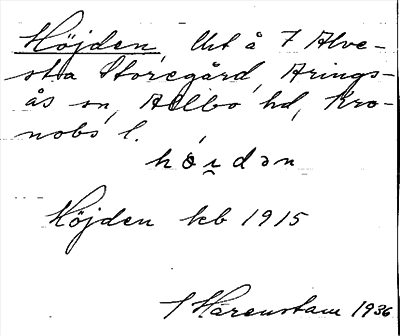 Höjden, Ut å 7 Alve-
sta Storegård, Arings-
ås sn, Allbo hd, Kro-
nobs l.
Höjden kb 1915
Harenstam 1936